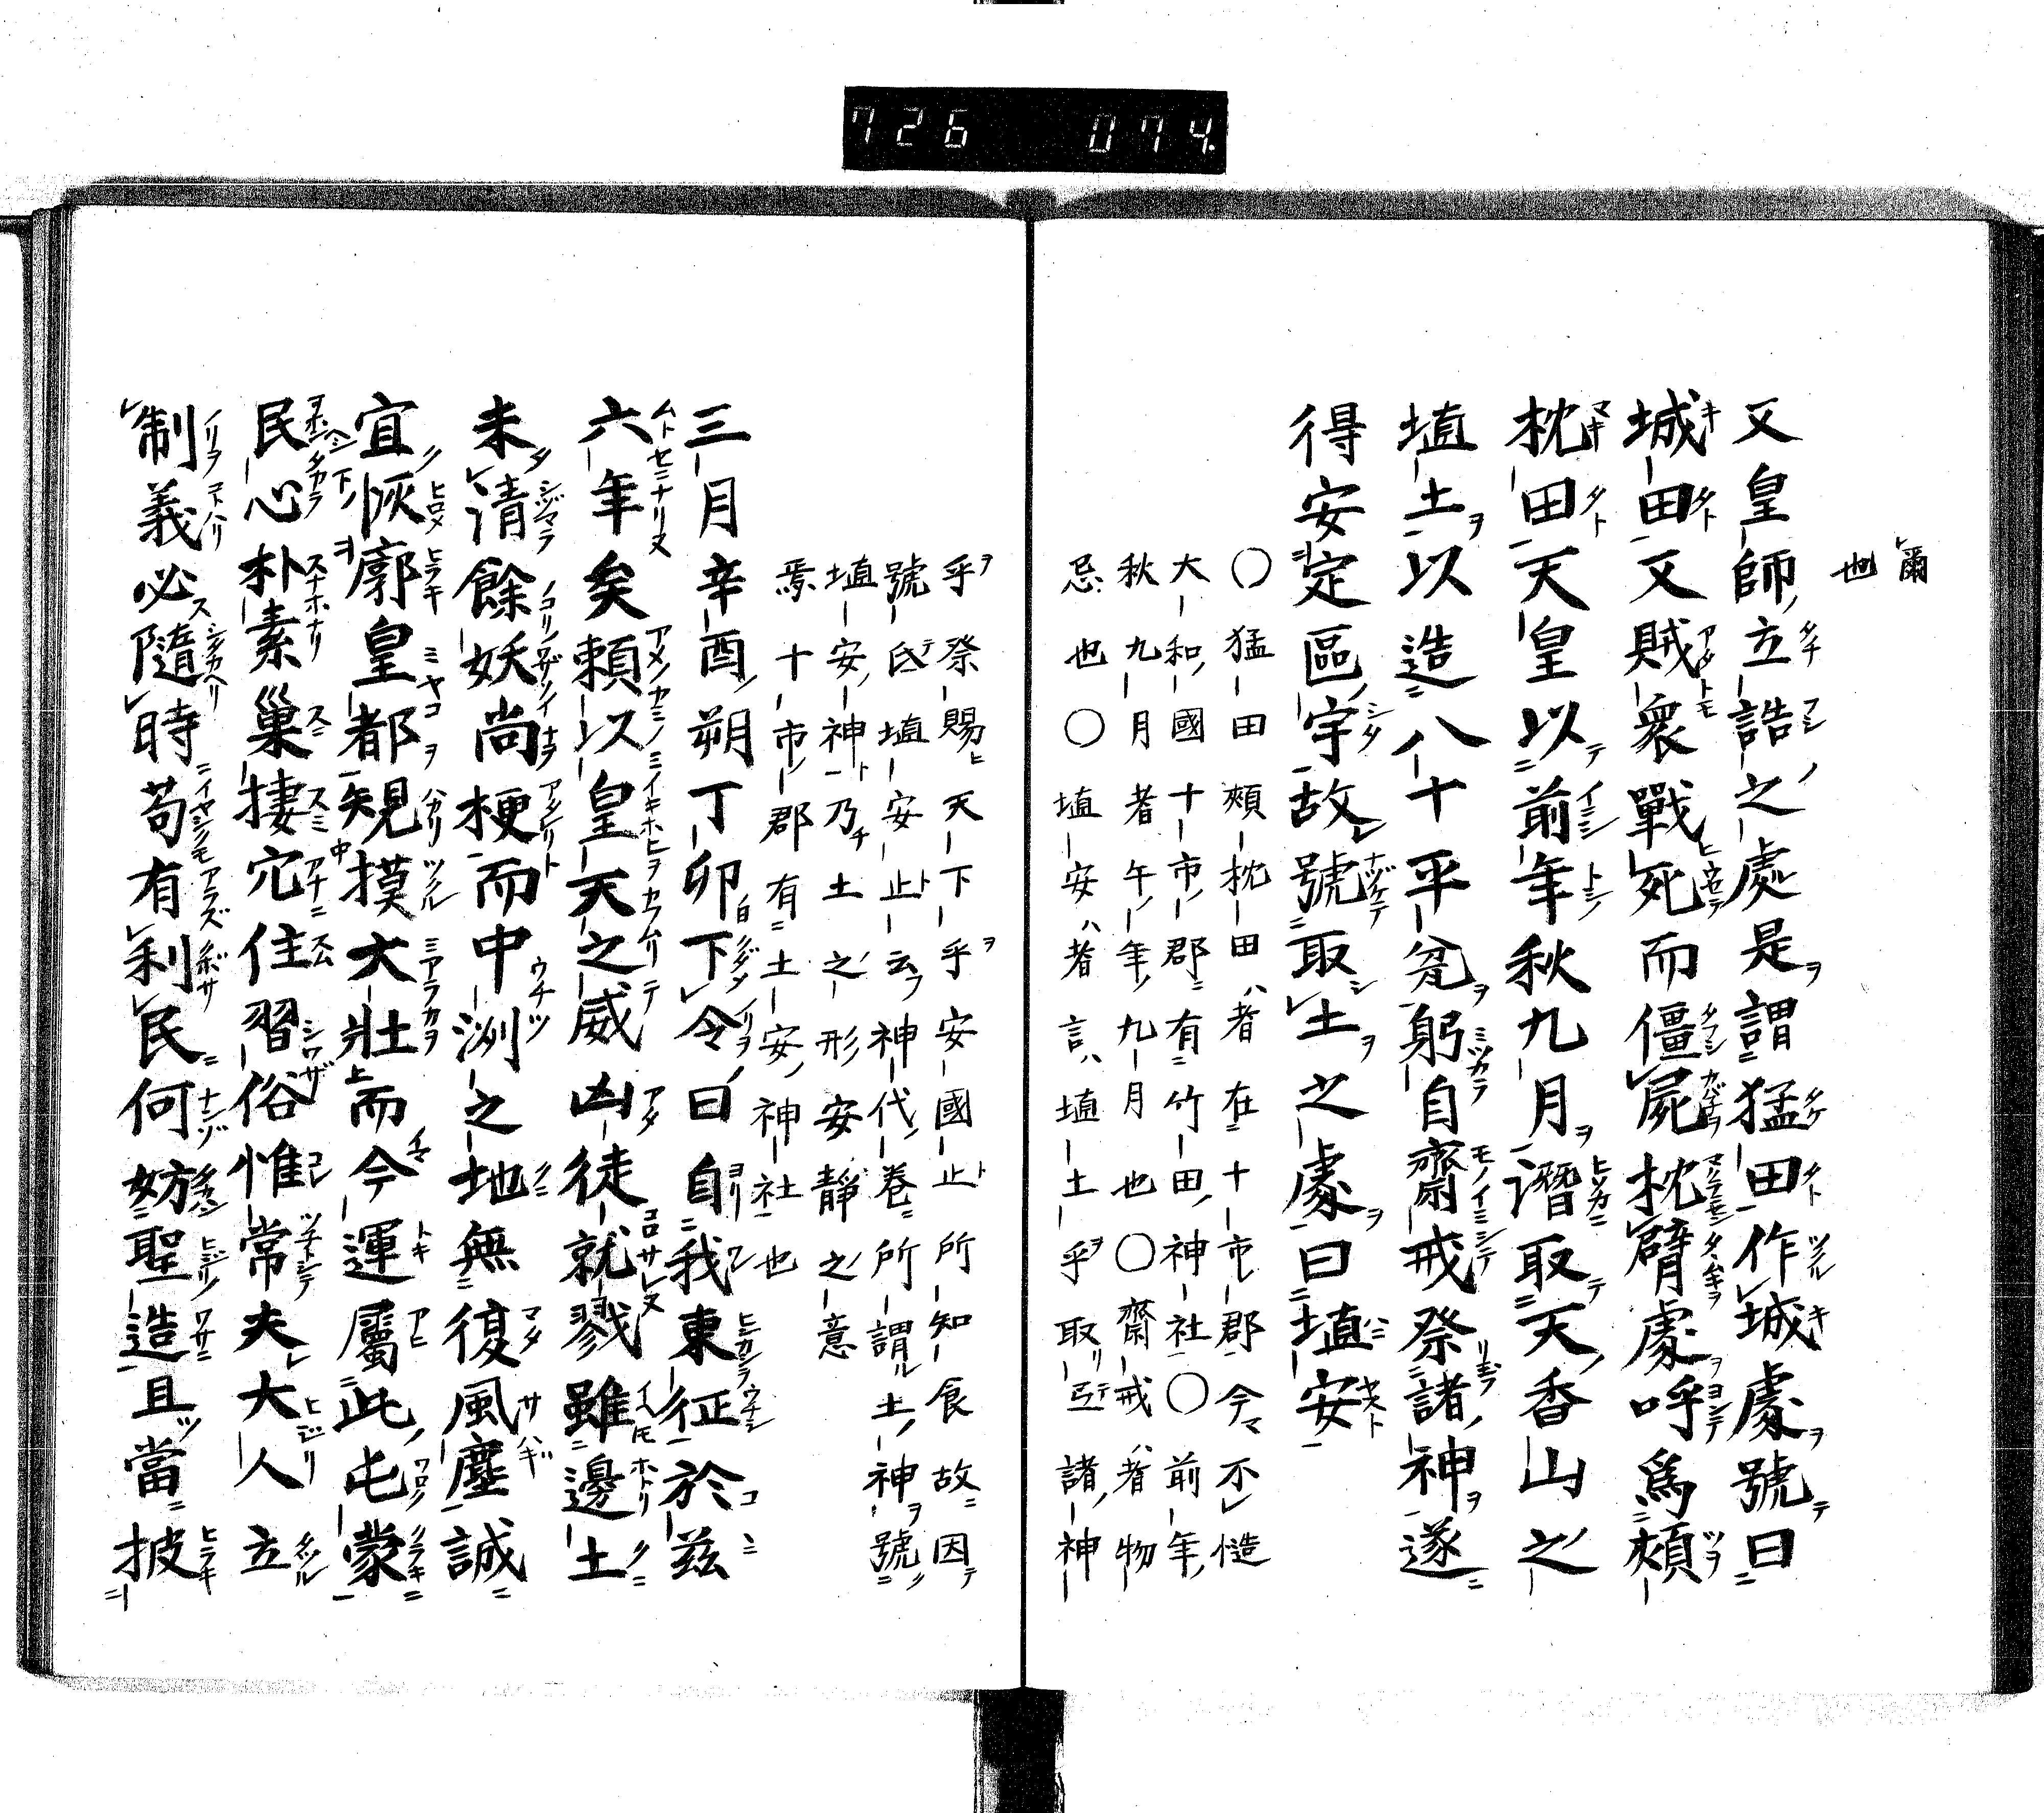 726 074
爾
也
又皇師立誥之處是謂猛田作城處號曰
城田又賊衆戰死而僵屍枕臂處呼爲頰
枕田天皇以前年秋九月潛取天香山之
埴土以造八十平瓮躬自齋戒祭諸神遂
得安定區宇故號取土之處曰埴安
○猛田頰枕田者在十市郡今不慥
大和國十市郡有竹田神社○前年
秋九月者午年九月也○齋戒者物
忌也○埴安者言埴土乎取弖諸神
乎祭賜天下乎安國止所知食故因
號氐埴安止云神代卷所謂土神號
埴安神乃土之形安靜之意
焉十市郡有土安神社也
三月辛酉朔丁卯下令曰自我東征於玆
六年矣頼以皇天之威凶徒就戮雖邊土
未清餘妖尚梗而中洲之地無復風塵誠
宜恢廓皇都規摸大壯而今運屬此屯蒙
民心朴素巢捿穴住習俗惟常夫大人立
制義必隨時苟有利民何妨聖造且當披